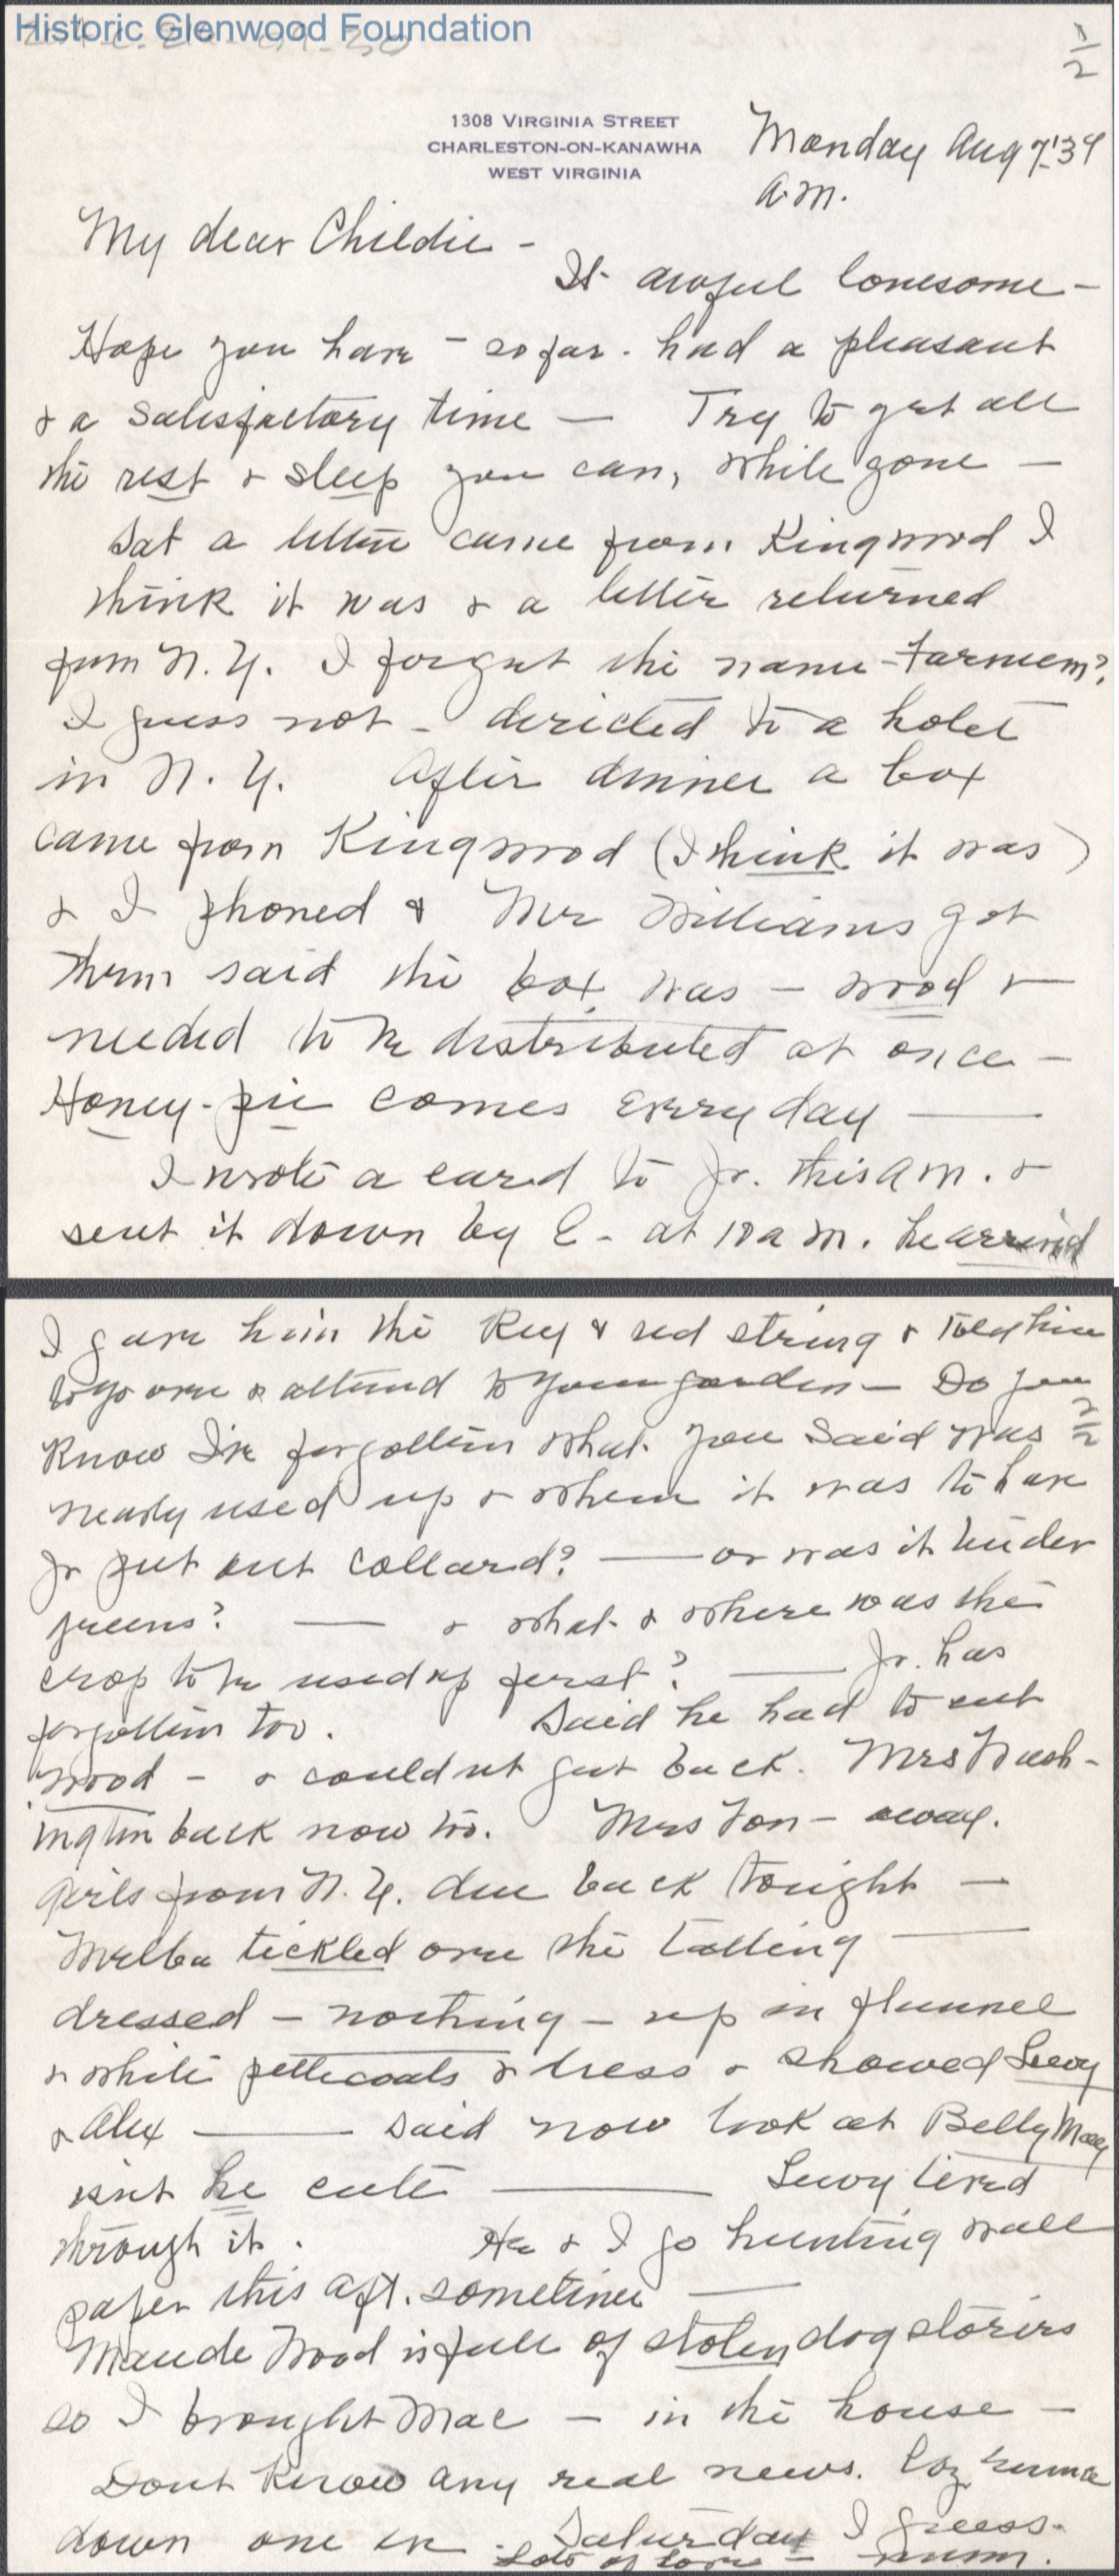 Historic Glenwood Foundation
1/2
1308 VIRGINIA STREET
CHARLESTON-ON-KANAWHA
WEST VIRGINIA
Monday Aug 7 '39
a.m.
My dear Childie -
It awful lonesome -
Hope you have - so far - had a pleasant
& a satisfactory time — Try to get all
the rest & sleep you can, while gone —
Sat a letter came from Kingwood I
think it was & a letter returned
from N. Y. I forget the name -
I guess not - directed to a hotel
in N. Y. After dinner a box
came from Kingwood (I think it was)
& I phoned & Mr Williams got
them said the box was - wood &
needed to be distributed at once -
Honey-pie comes every day —
I wrote a card to Jr. this a m. &
sent it down by E - at 10 a m. he arrived
I gave him the key & red string & told him
to go over & attend to your garden - Do you
2/2
know I've forgotten what you said was
nearly used up & where it was to have
Jr put out collard? — or was it tender
greens? — & what & where was the
crop to be used up first? — Jr. has
forgotten too. Said he had to cut
wood - & couldnt get back. Mrs Wash-
ington back now too. Mrs Fon - away.
Girls from N. Y. due back tonight —
Melba tickled over the
dressed - nothing - up in flannel
& white petticoats & dress & showed Lewy
& Alex — said now look at Betty May
isnt he cute — Lewy lived
through it. He & I go hunting wall
paper this aft. sometime —
Maude Wood is full of stolen dog stories
so I brought Mac - in the house -
Dont know any real news.
down one
Saturday I guess.
Lots of love - mum.